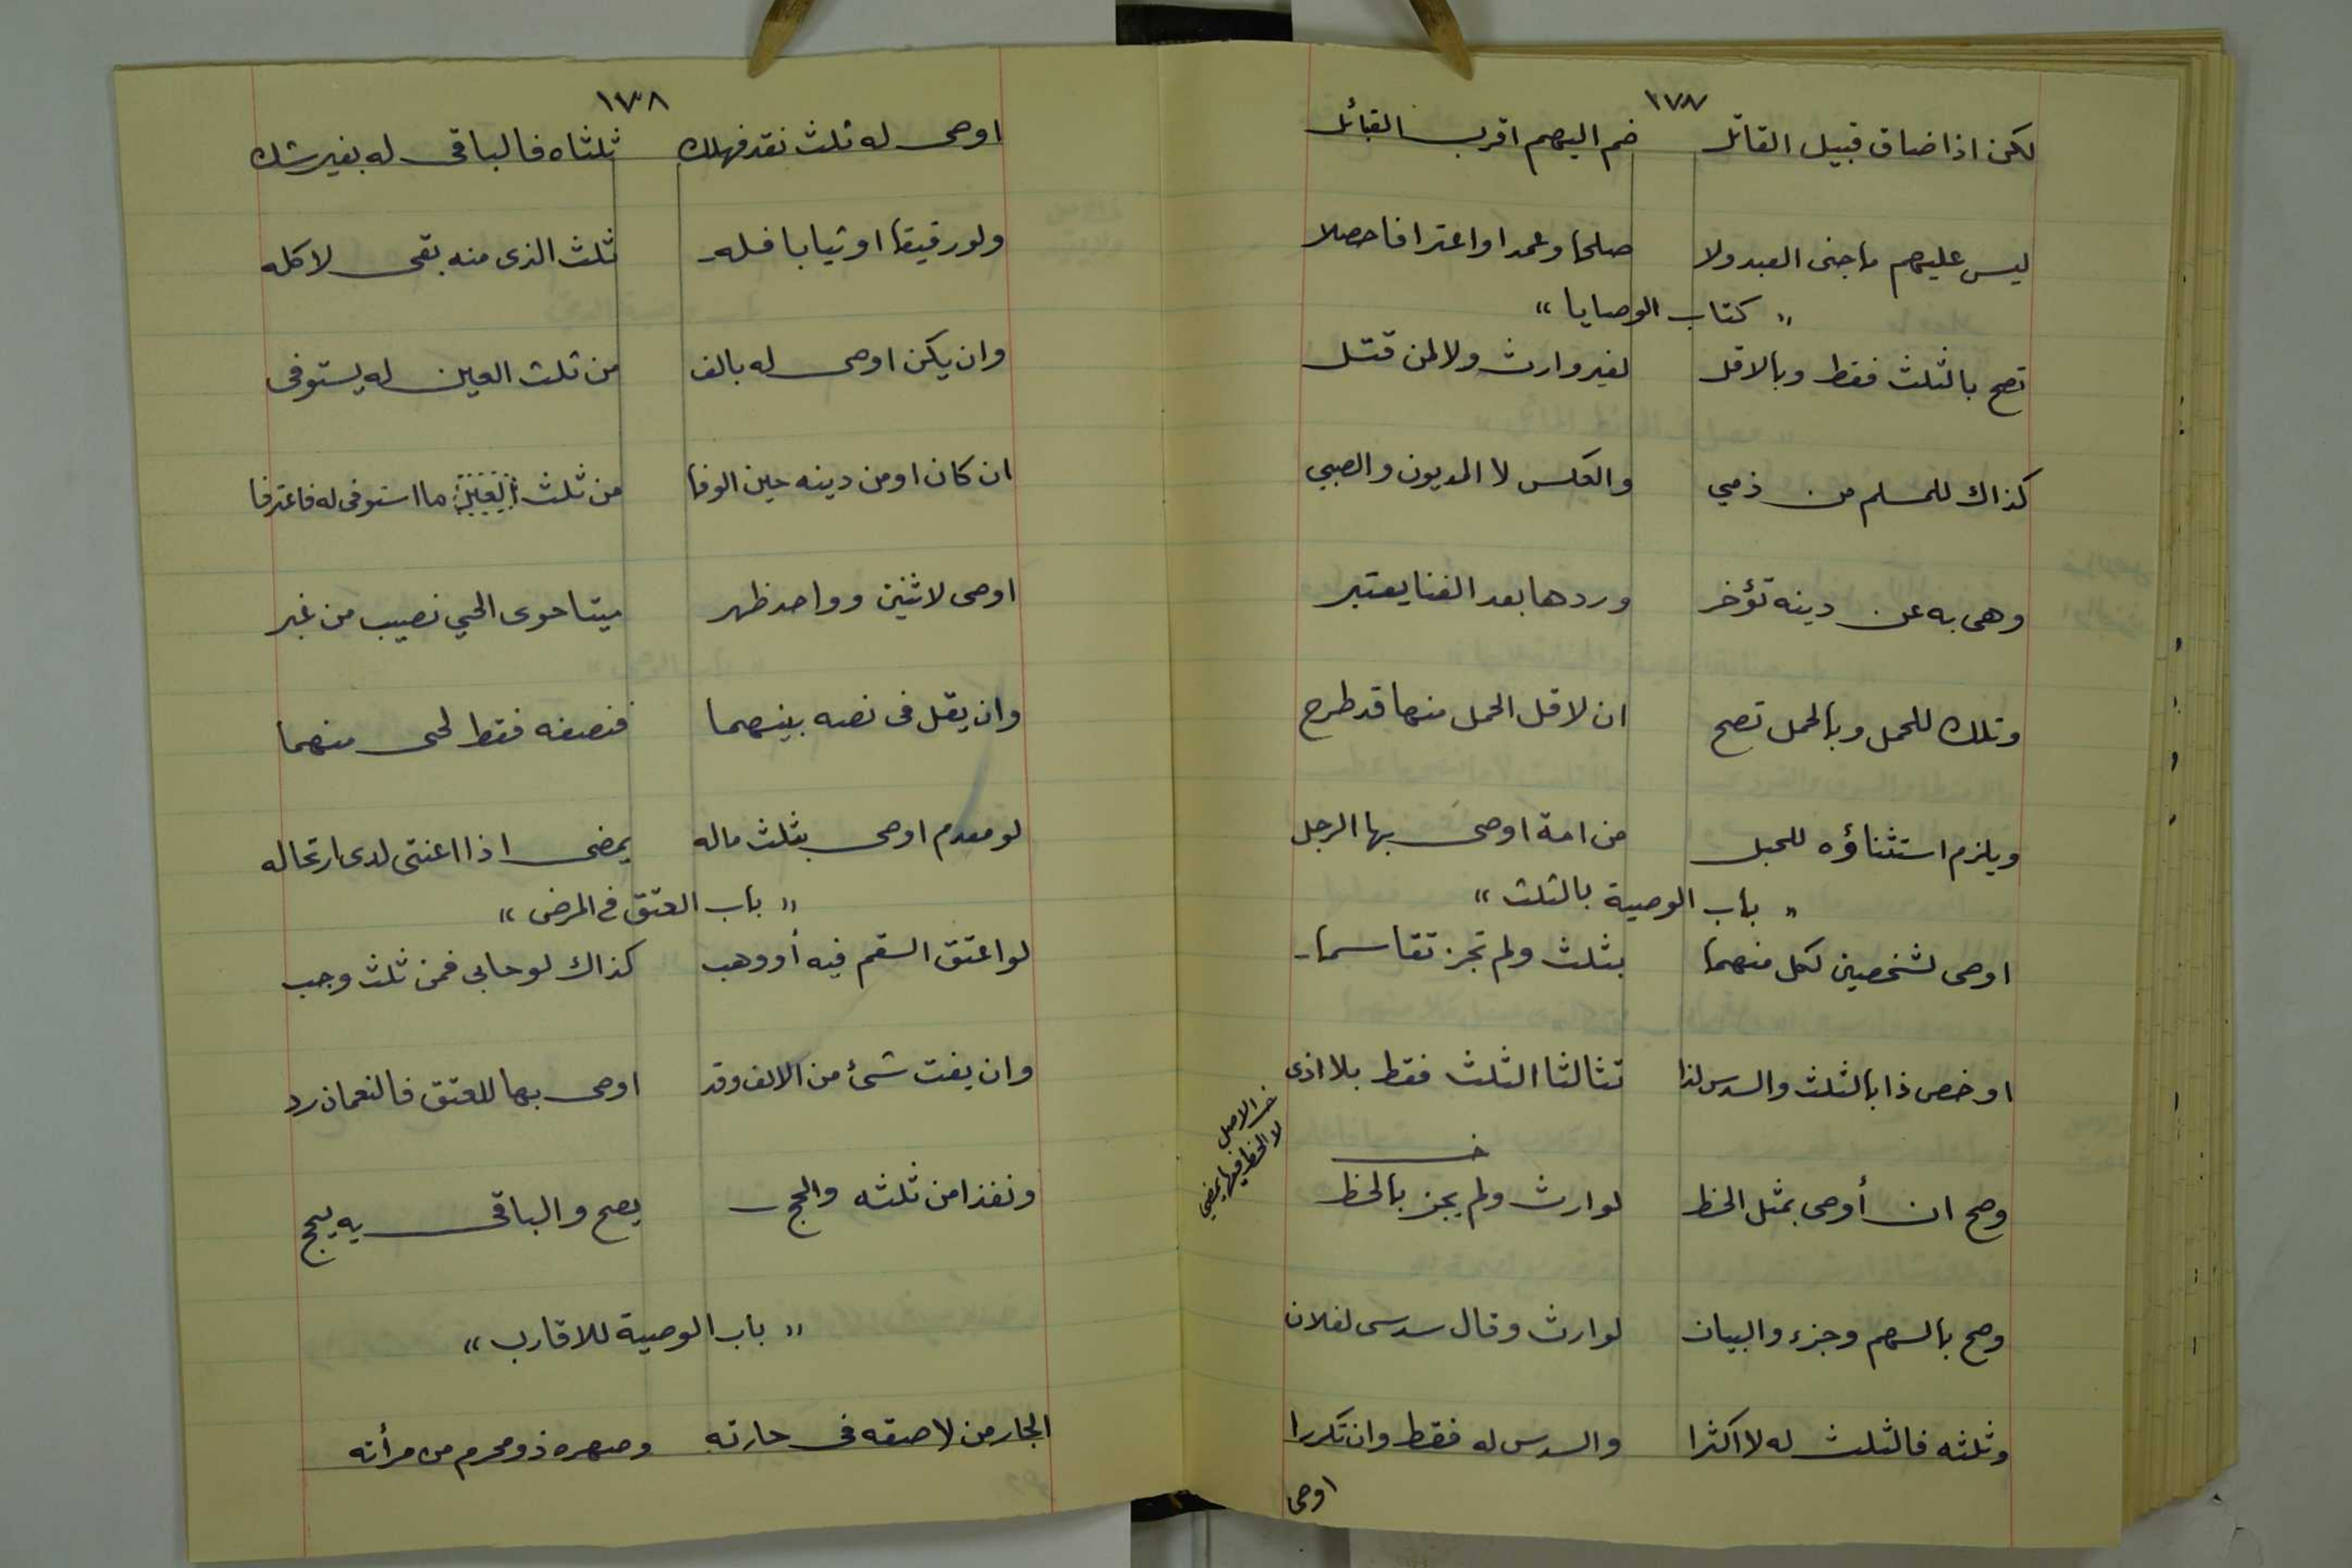 ١٧٧
لكن اذا ضاق قبيل القاتل ضم اليهم اقرب القبائل
ليس عليهم ما جنى العبد ولا صلحا وعمدا واعترافا حصلا
" كتاب الوصايا "
تصح بالثلث فقط وبالاقل لغير وارث ولا لمن قتل
كذاك للمسلم من ذمي والعكس لا المديون والصبي
وهى به عن دينه تؤخر وردها بعد الفنا يعتبر
وتلك للحمل وبالحمل تصح ان لاقل الحمل منها قد طرح
ويلزم استثناؤه للحبل من امة اوصى بها الرجل
" باب الوصية بالثلث "
اوصى لشخصين لكل منهما بثلث ولم تجز تقاسما
او خص ذا بالثلث والسدس لذا تثالثا الثلث فقط بلا اذى
وصح ان أوصى بمثل الحظ لوارث ولم يجز بالحظ
خـ الاصل
لا الحظ
وصح بالسهم وجزء والبيان لوارث وقال سدسى لفلان
وثلثه فالثلث له لا اكثرا والسدس له فقط وان تكررا
اوصى
١٧٨
اوصى له ثلث نقد فهلك ثلثاه فالباقى له بغير شك
ولو رقيقا او ثيابا فله ثلث الذى منه بقى لا كله
وان يكن اوصى له بالف من ثلث العين له يستوفى
ان كان او من دينه حين الوفا من ثلث العين ما استوفى له فاعترفا
اوصى لاثنين وواحد ظهر ميتا حوى الحي نصيب من غبر
وان يقل فى نصه بينهما فنصفه فقط لحى منهما
لو معدم اوصى بثلث ماله يمضى اذا اغتنى لدى ارتحاله
" باب العتق فى المرض "
لو اعتق السقم فيه أو وهب كذاك لو حابى فمن ثلث وجب
وان يفت شئ من الالف وقد اوصى بها للعتق فالنعمان رد
ونفذا من ثلثه والحج يصح والباقى به يحج
" باب الوصية للاقارب "
الجار من لاصقه فى حارته وصهره ذو محرم من مرأته